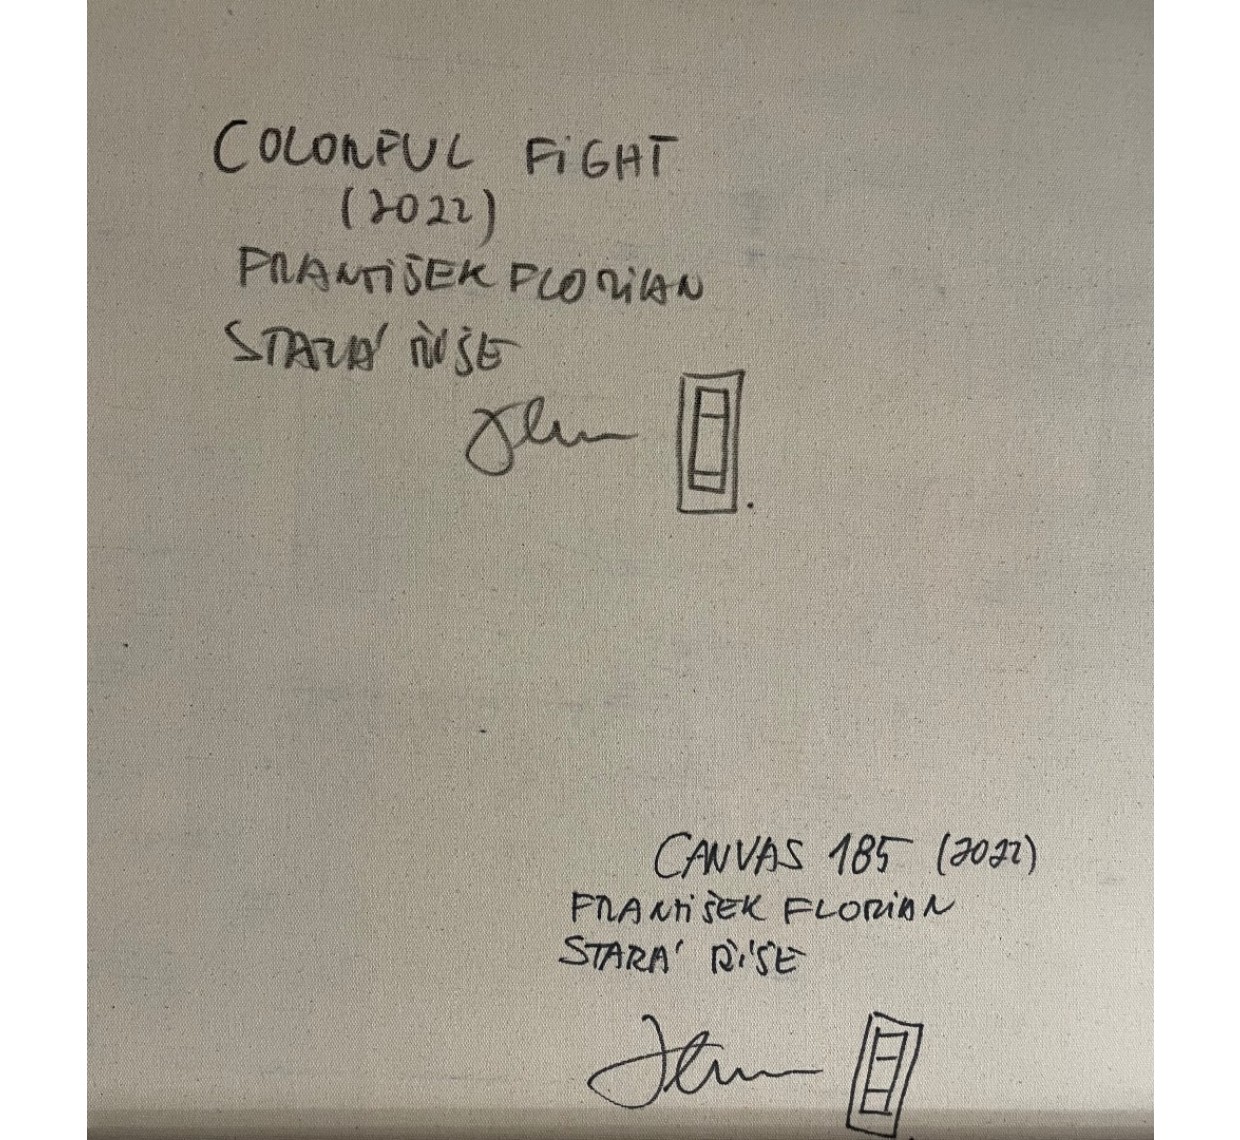 COLORFUL FiGHT
(2022)
FRANTiŠEK FLORiAN
STARÁ ŘíŠE
CANVAS 185 (2022)
FRANTiŠEK FLORiAN
STARÁ ŘíŠE